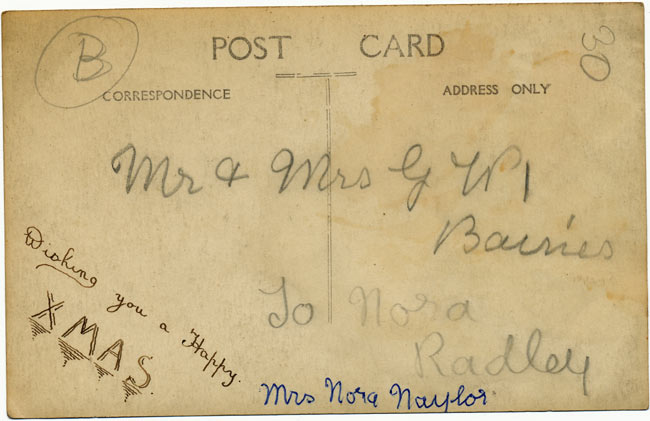 B
POST CARD
30
CORRESPONDENCE
ADDRESS ONLY
Mr & Mrs G W
Bairies
Wishing you a Happy
XMAS.
To Nora
Radley
Mrs Nora Naylor